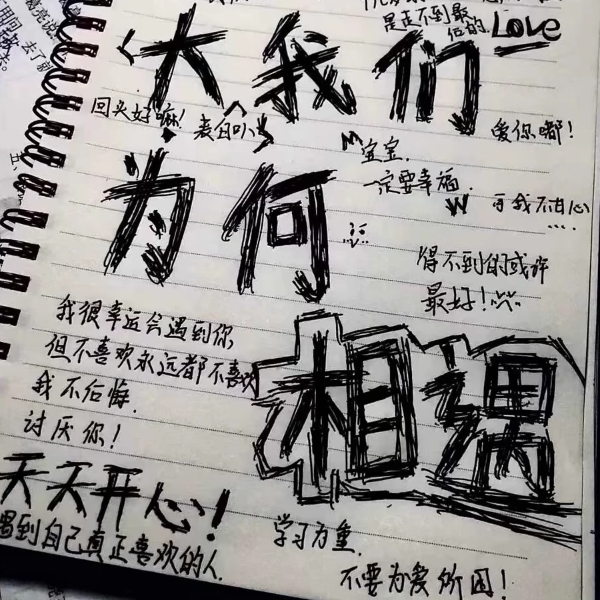 是走不到最
后的.
Love
大我们
回头好嘛!
表白叭
爱你嘟!
宝宝.
一定要幸福.
可我不甘心
....
为何
得不到的或许
最好!
我很幸运会遇到你
但不喜欢永远都不喜欢
我不后悔.
讨厌你!
相遇
天天开心!
遇到自己真正喜欢的人.
学习为重.
不要为爱所困!